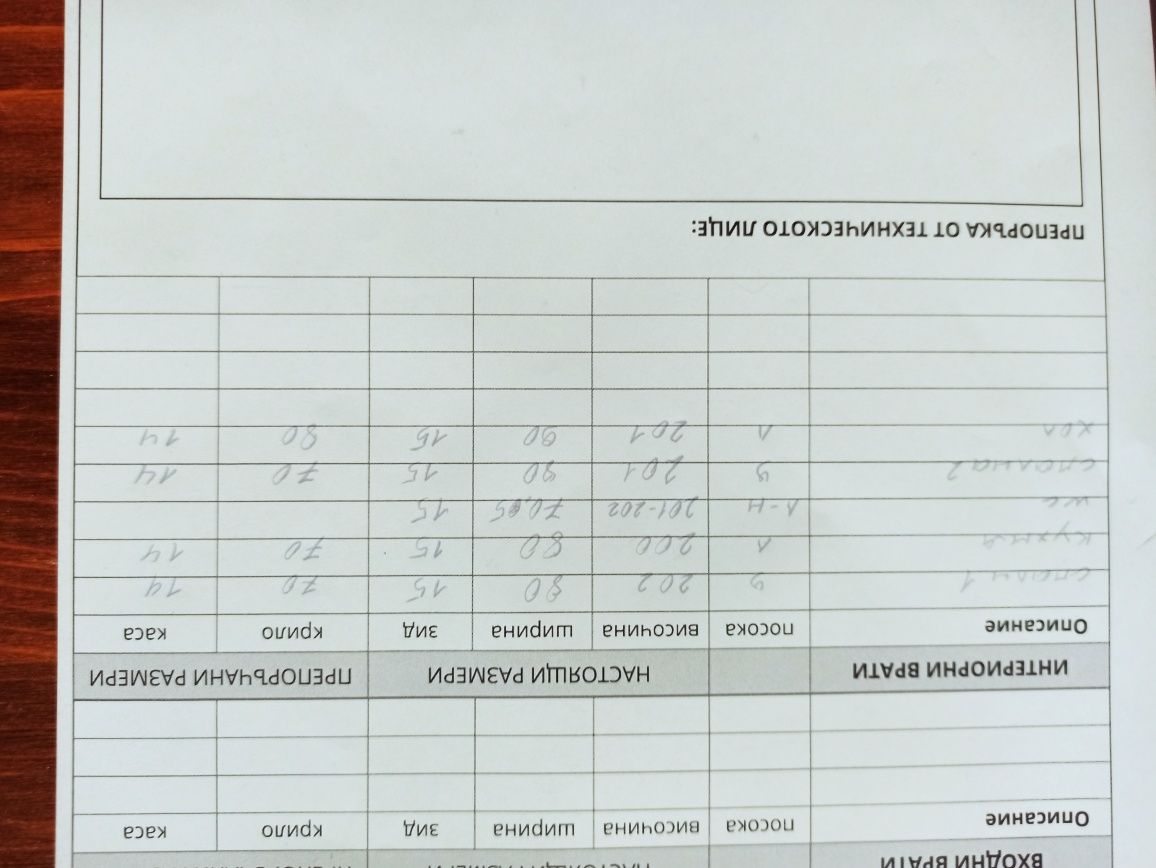 ВХОДНИ ВРАТИ НАСТОЯЩИ РАЗМЕРИ
Описание посока височина ширина зид крило каса
ИНТЕРИОРНИ ВРАТИ НАСТОЯЩИ РАЗМЕРИ ПРЕПОРЪЧАНИ РАЗМЕРИ
Описание посока височина ширина зид крило каса
202 80 15 70 14
кухня Л 200 80 15 70 14
wc Л-Н 201-202 15
спалня 2 201 90 15 70 14
хол Л 201 90 15 80 14
ПРЕПОРЪКА ОТ ТЕХНИЧЕСКОТО ЛИЦЕ: